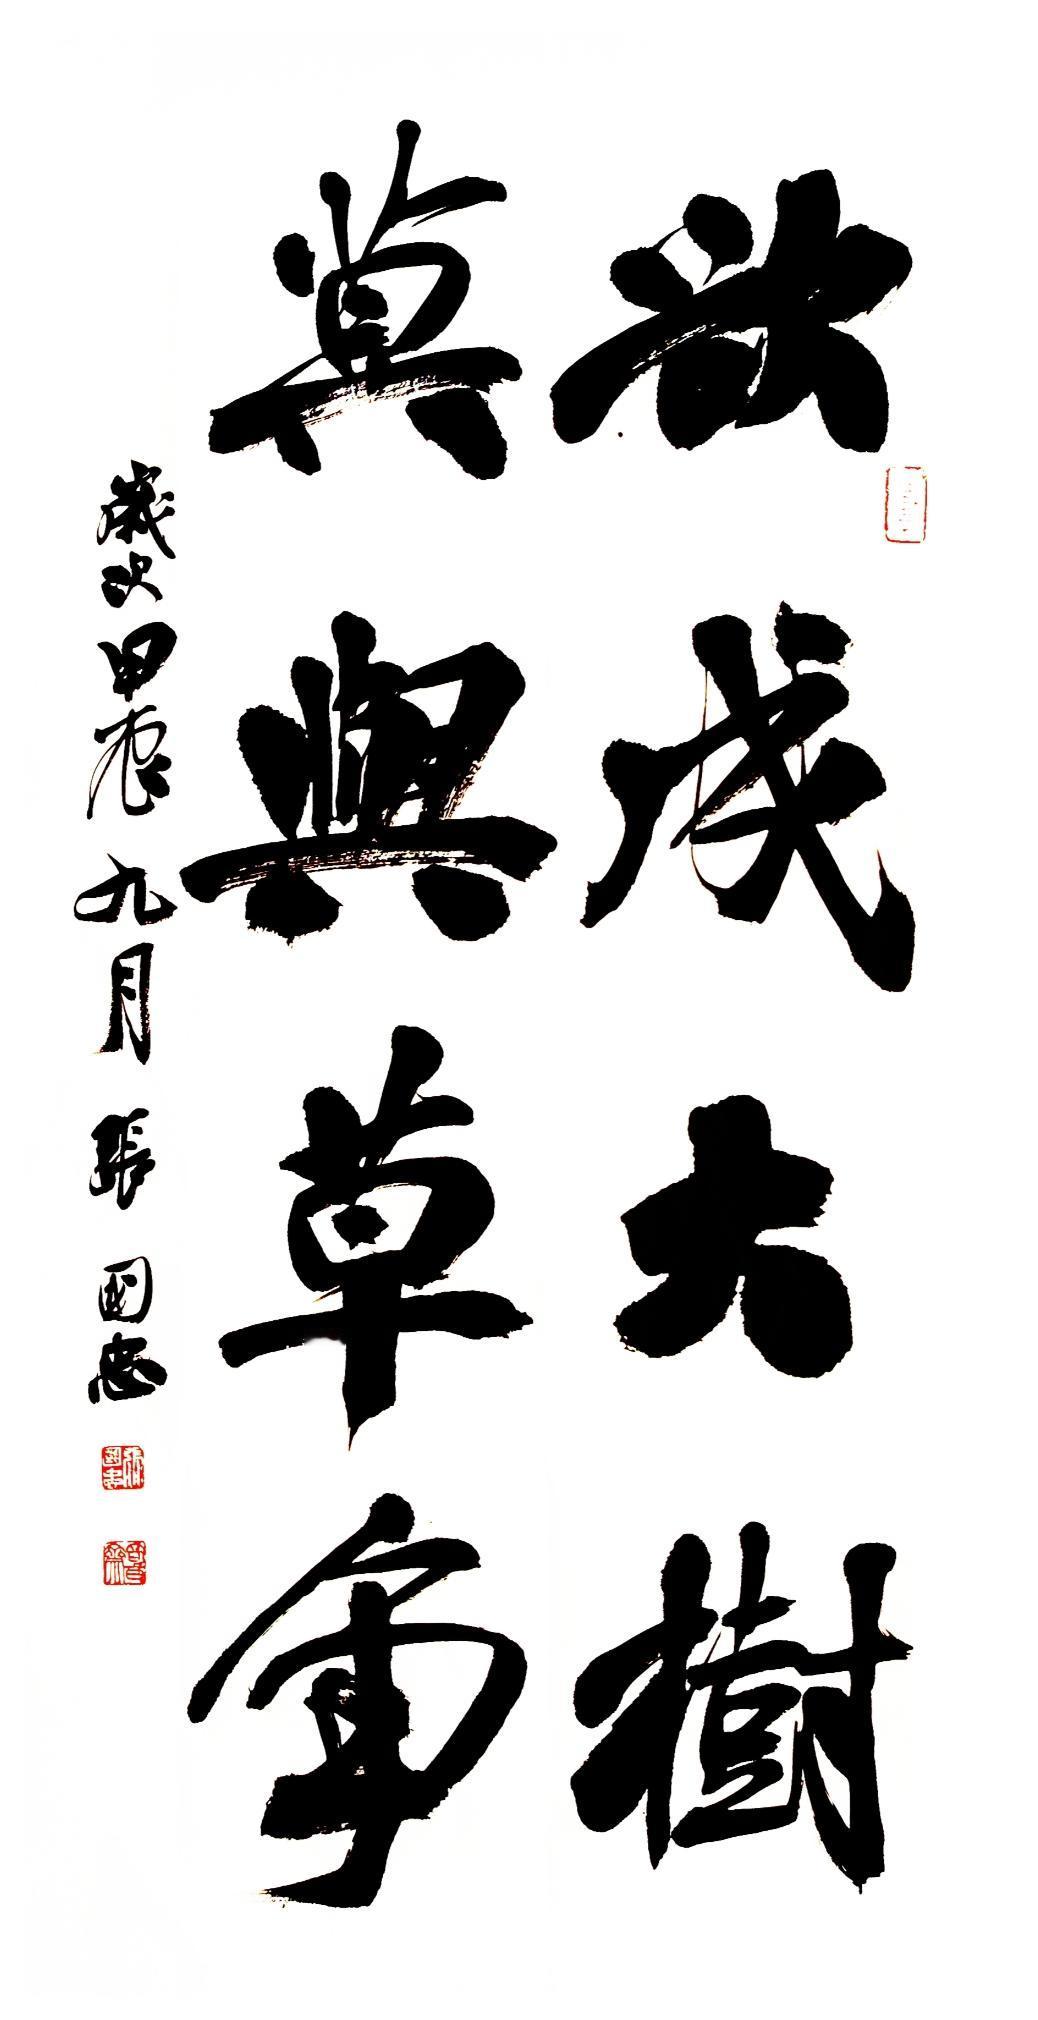 欲成大樹
莫與草争
歲次甲辰九月張國忠